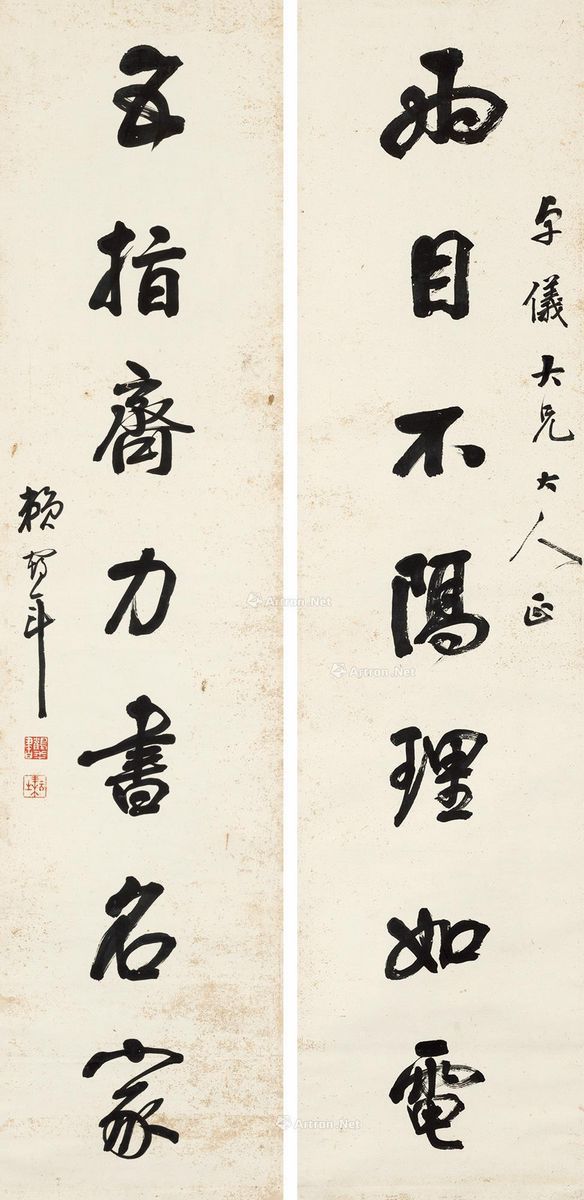 卓儀大兄大人正
兩目不隔理如電
五指齊力書名家
賴鶴年
Artron.Net
Artron.Net
Artron.Net